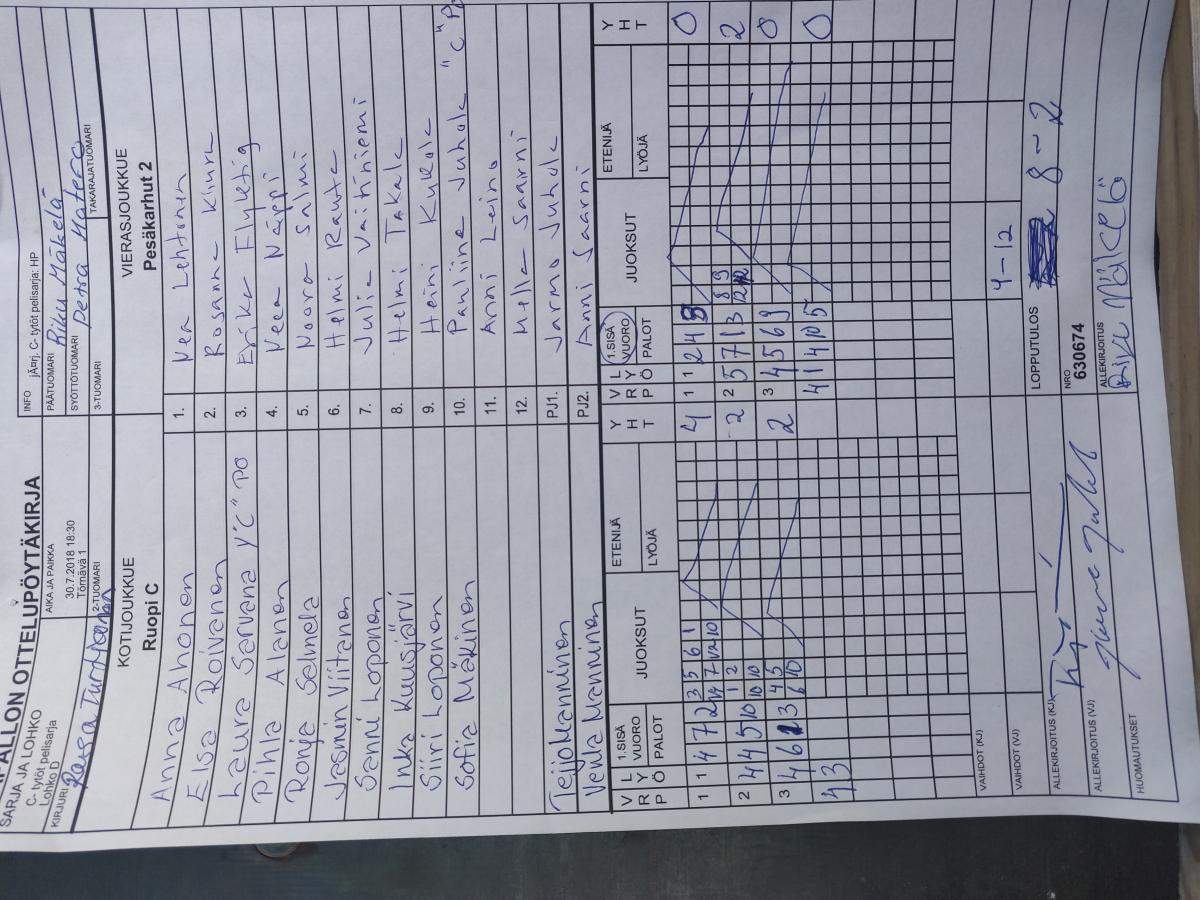 PALLON OTTELUPÖYTÄKIRJA
SARJA JA LOHKO
C- tytöt pelisarja
Lohko D
AIKA JA PAIKKA
30.7.2018 18:30
Törnävä 1
INFO jÃ¤rj. C- tytöt pelisarja: HP
PÄÄTUOMARI Riku Mäkelä
SYÖTTÖTUOMARI Petra Matero
KIRJURI
2-TUOMARI
3-TUOMARI
TAKARAJATUOMARI
KOTIJOUKKUE
Ruopi C
VIERASJOUKKUE
Pesäkarhut 2
Anna Ahonen 1. Nea Lehtonen
Elsa Roivanen 2. Rosanna Kiura
Laura Sarvana "C" PO 3. Erika Flyktig
Pihla Alanen 4. Veea Näppi
Ronja Selmela 5. Noora Salmi
Jasmin Viitanen 6. Helmi Rauta
Sanni Loponen 7. Julia Vaitiniemi
Inka Kuusjärvi 8. Helmi Takala
Siiri Loponen 9. Heini Kukola
Sofia Mäkinen 10. Pauliina Juhola "C"
11. Anni Leino
12. Hella Saarni
Teijo Manninen PJ1. Jarmo Juhola
Venla Manninen PJ2. Anni Saarni
VRP LYÖ 1.SISÄ VUORO PALOT JUOKSUT ETENIJÄ LYÖJÄ YHT VRP LYÖ 1.SISÄ VUORO PALOT JUOKSUT ETENIJÄ LYÖJÄ YHT
1 1 4 7 2 3 5 6 1 4 1 1 2 4 8 0
2 4 4 5 10 1 2 2 2 5 7 1 3 8 9 2
10 10
3 4 6 3 4 5 2 3 4 5 6 9 0
6 10
4 3 4 1 4 10 5 0
VAIHDOT (KJ) 4-12
VAIHDOT (VJ)
ALLEKIRJOITUS (KJ)
LOPPUTULOS 8-2
ALLEKIRJOITUS (VJ)
NRO
630674
ALLEKIRJOITUS
HUOMAUTUKSET